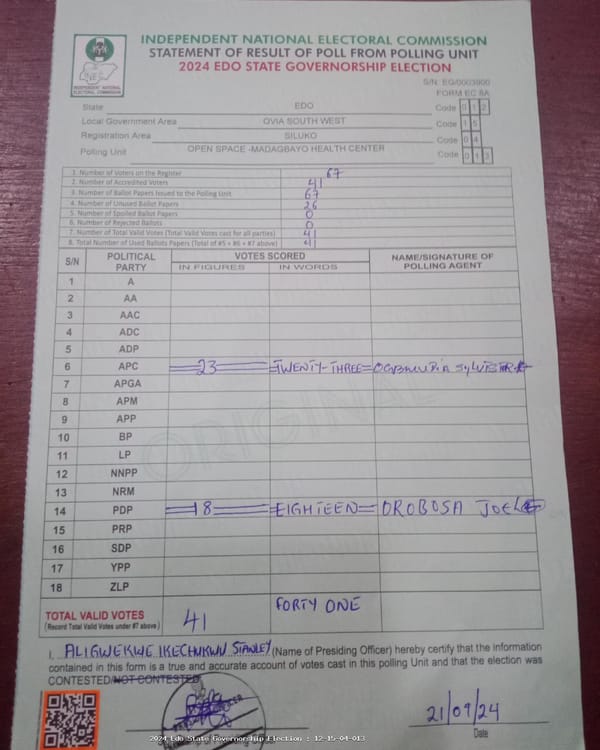 INDEPENDENT NATIONAL ELECTORAL COMMISSION
STATEMENT OF RESULT OF POLL FROM POLLING UNIT
2024 EDO STATE GOVERNORSHIP ELECTION
INEC
INDEPENDENT NATIONAL ELECTORAL COMMISSION
S/N: EG/0003900
FORM EC 8A
State EDO Code 0 1 2
Local Government Area OVIA SOUTH WEST Code 1 5
Registration Area SILUKO Code 0 4
Polling Unit OPEN SPACE -MADAGBAYO HEALTH CENTER Code 0 1 3
1. Number of Voters on the Register 67
2. Number of Accredited Voters 41
3. Number of Ballot Papers Issued to the Polling Unit 67
4. Number of Unused Ballot Papers 26
5. Number of Spoiled Ballot Papers 0
6. Number of Rejected Ballots 0
7. Number of Total Valid Votes (Total Valid Votes cast for all parties) 41
8. Total Number of Used Ballots Papers (Total of #5 + #6 + #7 above) 41
S/N POLITICAL PARTY VOTES SCORED NAME/SIGNATURE OF POLLING AGENT
IN FIGURES IN WORDS
1 A
2 AA
3 AAC
4 ADC
5 ADP
6 APC 23 TWENTY-THREE
7 APGA
8 APM
9 APP
10 BP
11 LP
12 NNPP
13 NRM
14 PDP 18 EIGHTEEN OROBOSA JOEL
15 PRP
16 SDP
17 YPP
18 ZLP
ORIGINAL
TOTAL VALID VOTES 41 FORTY ONE
(Record Total Valid Votes under #7 above)
I, ALIGWEKWE IKECHUKWU STANLEY (Name of Presiding Officer) hereby certify that the information
contained in this form is a true and accurate account of votes cast in this polling Unit and that the election was
CONTESTED/NOT CONTESTED
21/09/24
Date
2024 Edo State Governorship Election : 12-15-04-013